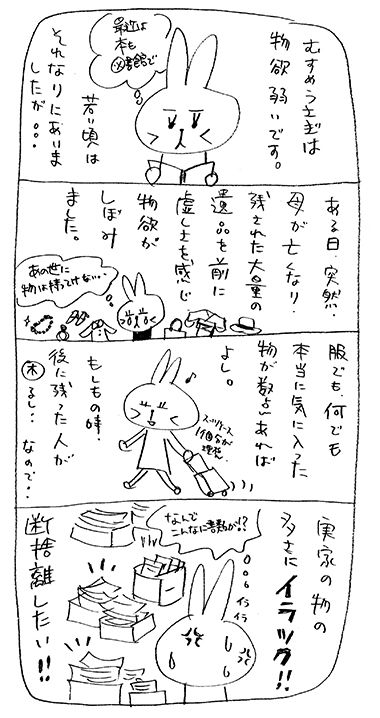 むすめうさぎは
物欲弱いです。
最近は
本も
図書館で
若い頃は
それなりにありま
したが。。。
ある日、突然、
母が亡くなり、
残された大量の
遺品を前に
虚しさを感じ
物欲が
しぼみ
ました。
あの世に
物は持ってけない…
服でも、何でも
本当に気に入った
物が数点あれば
よし。
スーツケース
1個分が
理想。
もしもの時、
後に残った人が
困るし… なので…
実家の物の
多さに
イラッグ!!
なんで
こんなに書類が!?
イライラ
断捨離したい!!